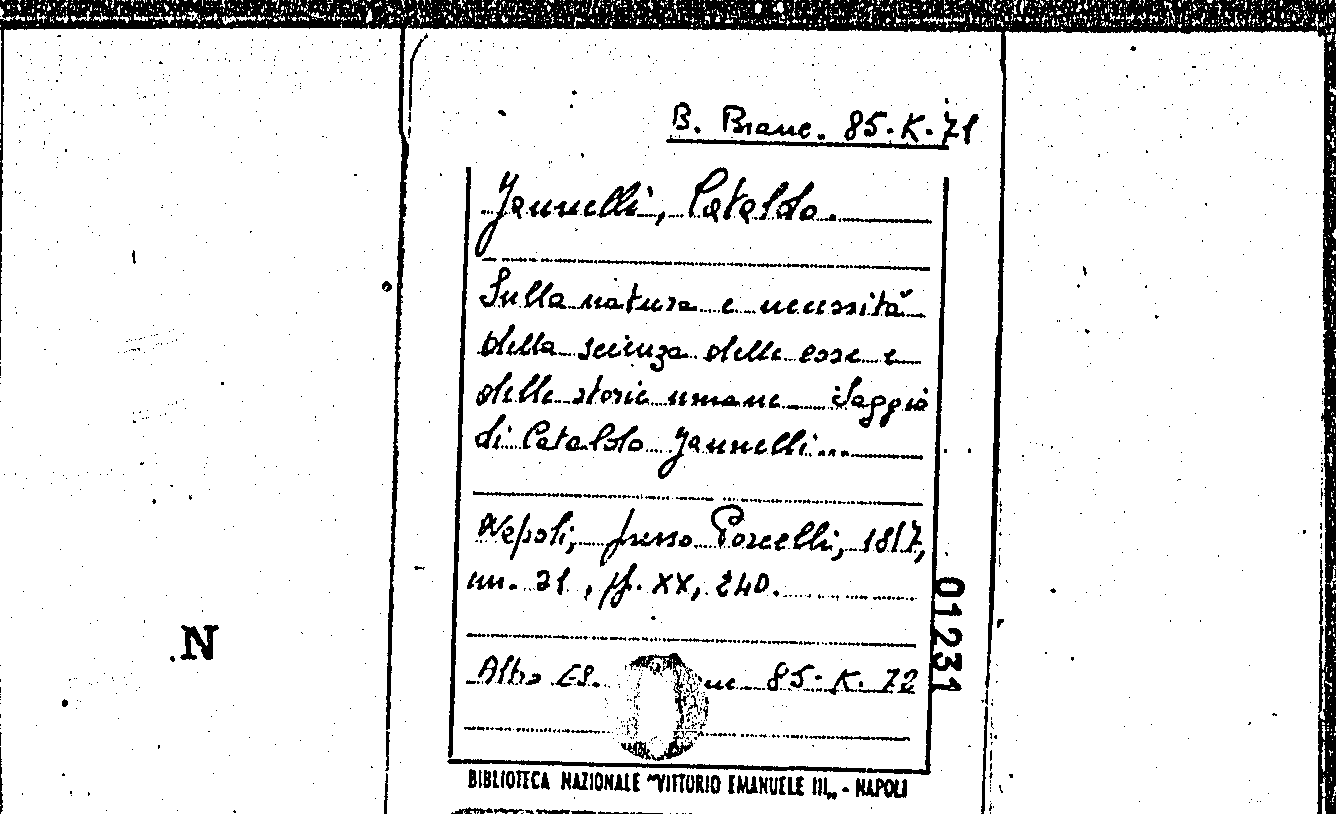 B. Branc. 85-K-71
Jannelli, Cataldo.
Sulla natura e necessità
della scienza delle cose e
delle storie umane Saggio
di Cataldo Jannelli...
Napoli, presso Porcelli, 1817,
cm. 21, pp. XX, 240.
01231
N
Altro es. 85-K. 72
BIBLIOTECA NAZIONALE "VITTORIO EMANUELE III„ - NAPOLI